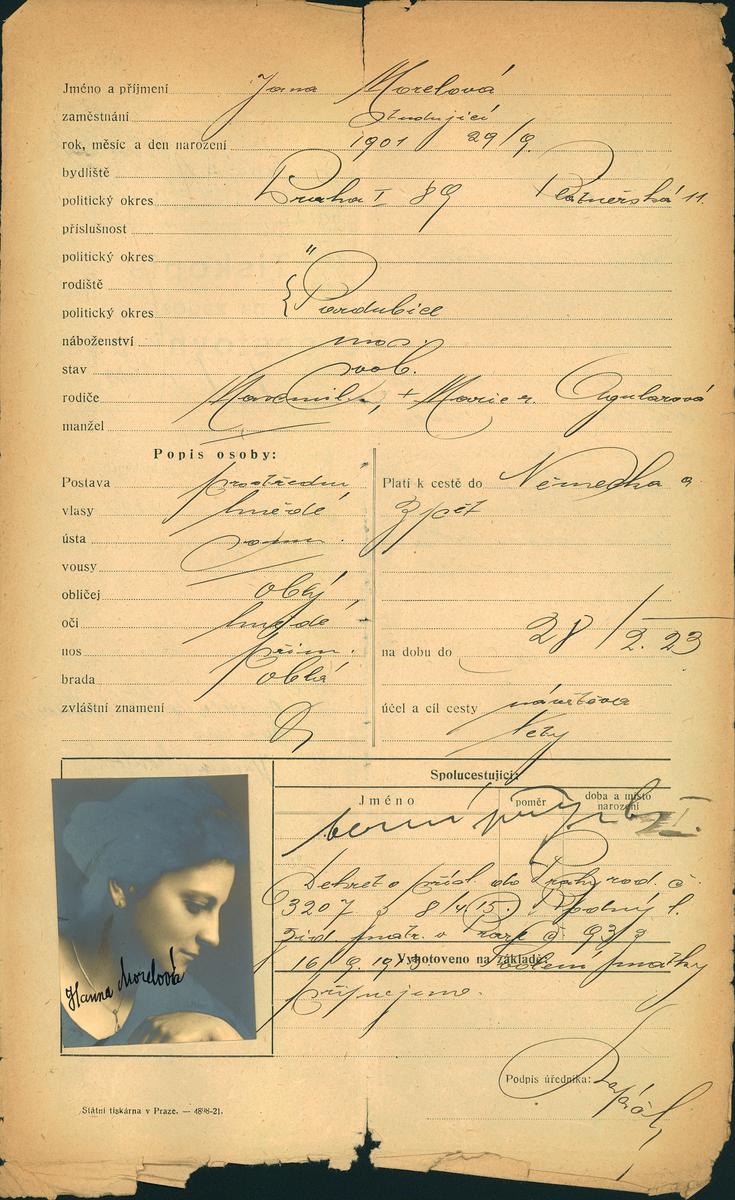 Jméno a příjmení Jana Morelová
zaměstnání studující
rok, měsíc a den narození 1901 29/9.
bydliště
politický okres Praha I 89 Platnéřská 11.
příslušnost
politický okres "
rodiště
politický okres Pardubice
náboženství mos.
stav svob.
rodiče Maxmil., + Marie r. Ungularová
manžel
Popis osoby:
Postava prostřední
vlasy hnědé
ústa soum.
vousy
obličej oblý
oči hnědé
nos přím.
brada oblá
zvláštní znamení
Platí k cestě do Německa a
zpět
na dobu do 28/2.23
účel a cíl cesty návštěva
tety
Spolucestující:
Jméno poměr doba a místo narození
Dekret o přísl. do Prahy rod. č.
3207 z 8/4 15. Rodný l.
žid. matr. v Praze č. 93/3
16/9. 19
Vyhotoveno na základě: matky
připojeno.
Hanna Morelová
Podpis úředníka:
Státní tiskárna v Praze. — 4898-21.